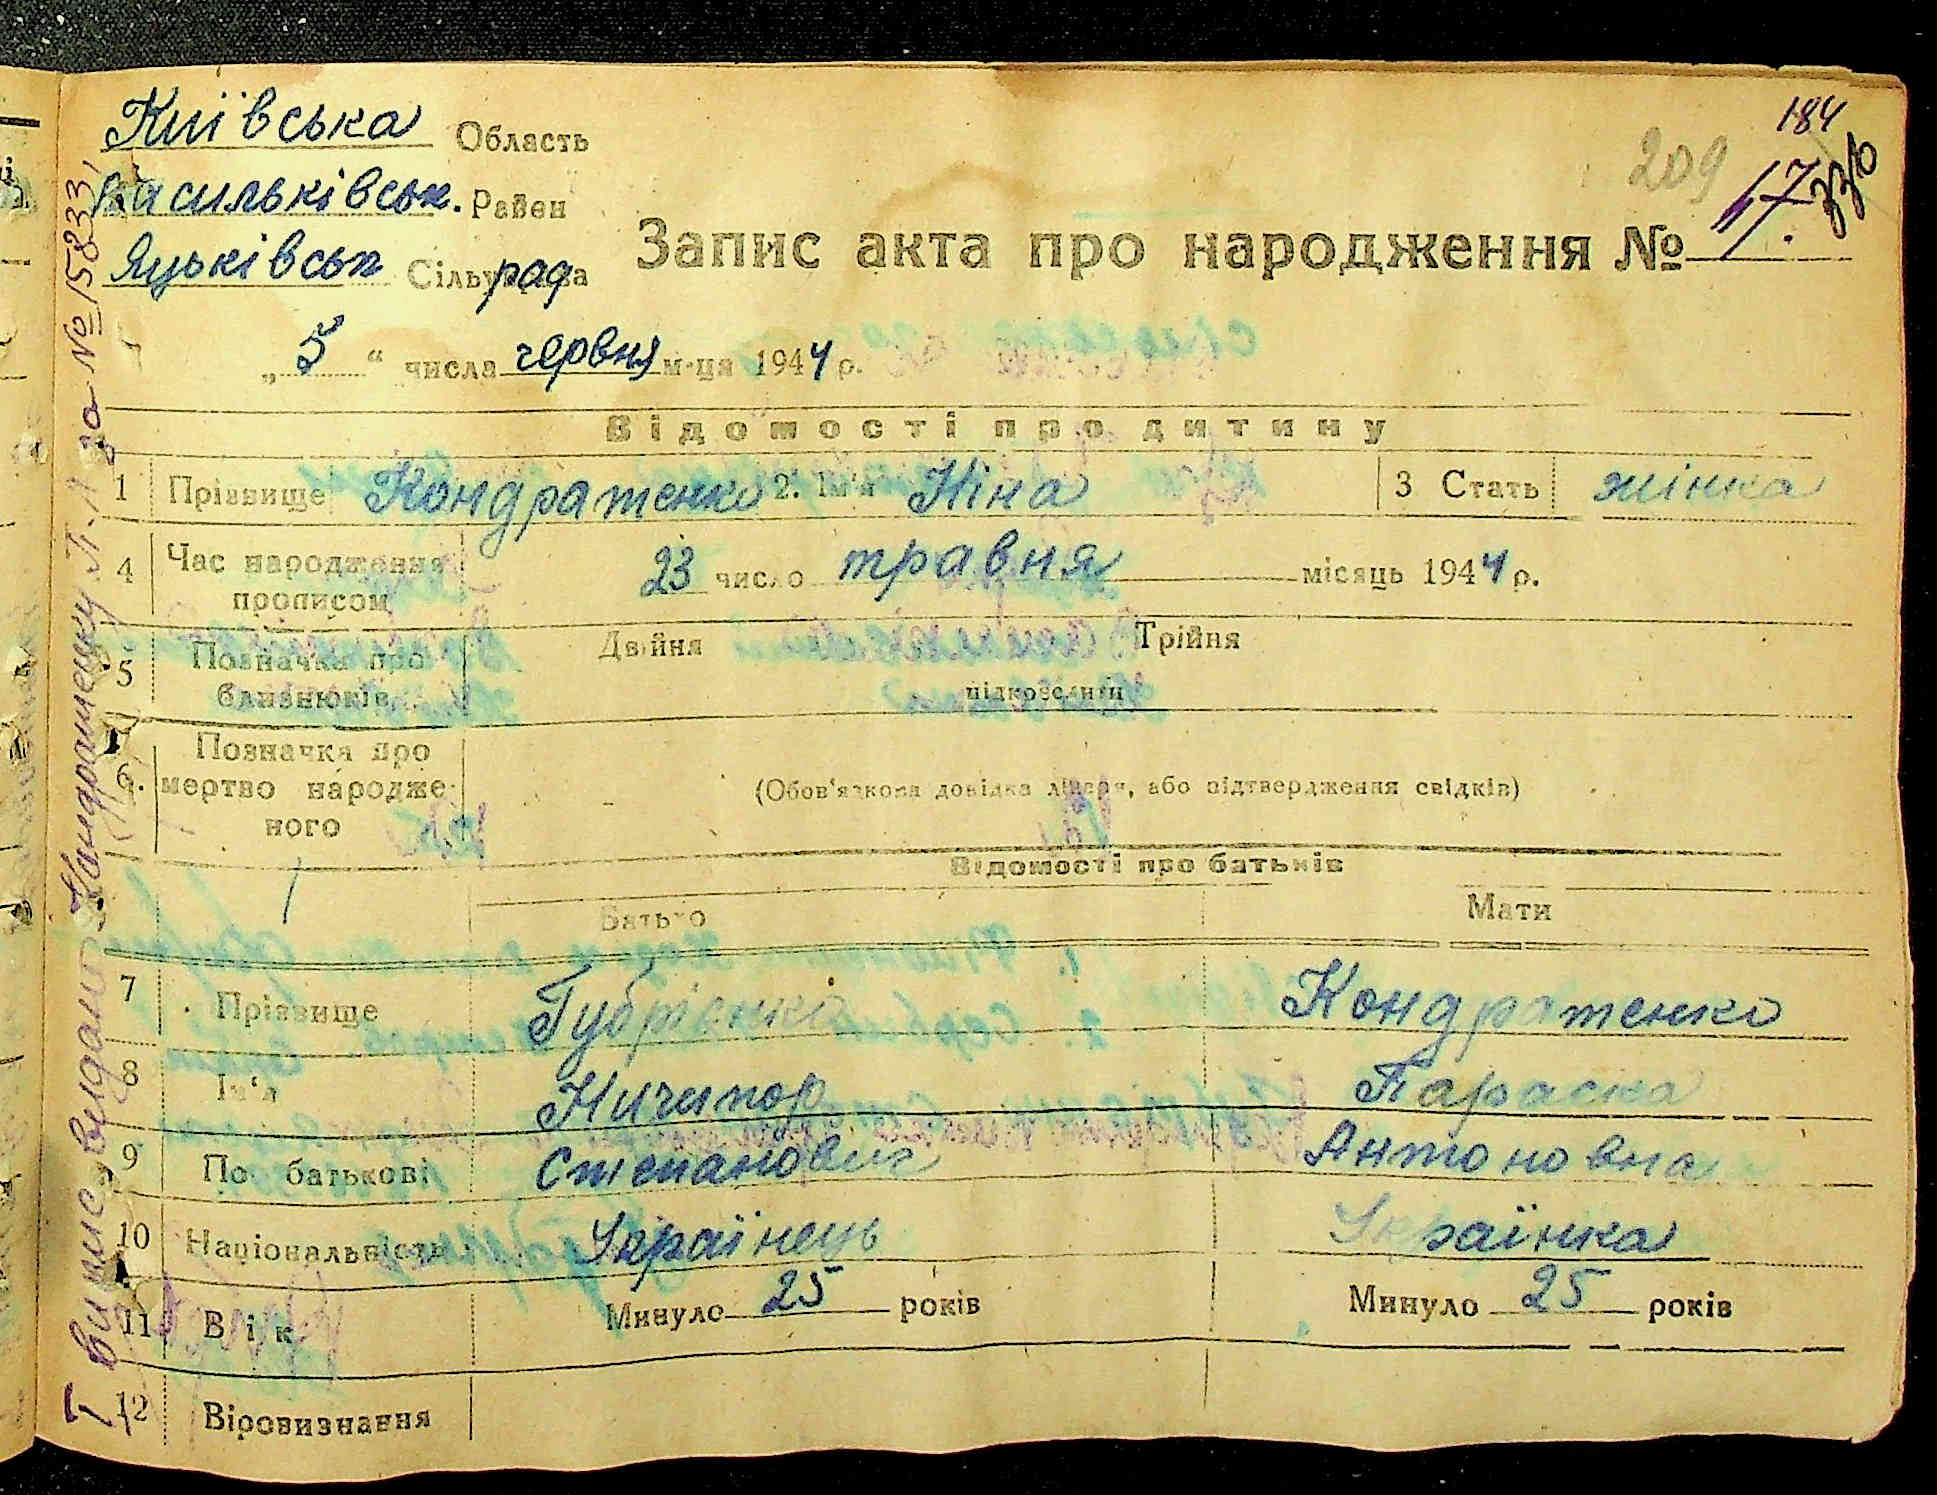 Київська Область
Васильківськ. Район
Яцьківськ Сільуправа рад
184
209
17. 330
Запис акта про народження №
„ 5 “ числа червня м-ця 1944 р.
Відомості про дитину
1 Прізвище Кондратенко 2. Ім'я Ніна 3 Стать жінка
4 Час народження прописом 23 число травня місяць 1944 р.
5 Позначка про близнюків Двійня Трійня
підкреслити
6. Позначка про мертво народже-
ного
(Обов'язкова довідка лікаря, або підтвердження свідків)
Відомості про батьків
Батько Мати
7 Прізвище Губрієнко Кондратенко
8 Ім'я Ничипор Параска
9 По батькові Степанович Антоновна
10 Національність Українець Українка
11 Вік Минуло 25 років Минуло 25 років
12 Віровизнання
Випис видано Кондратенку П. А за № 15833